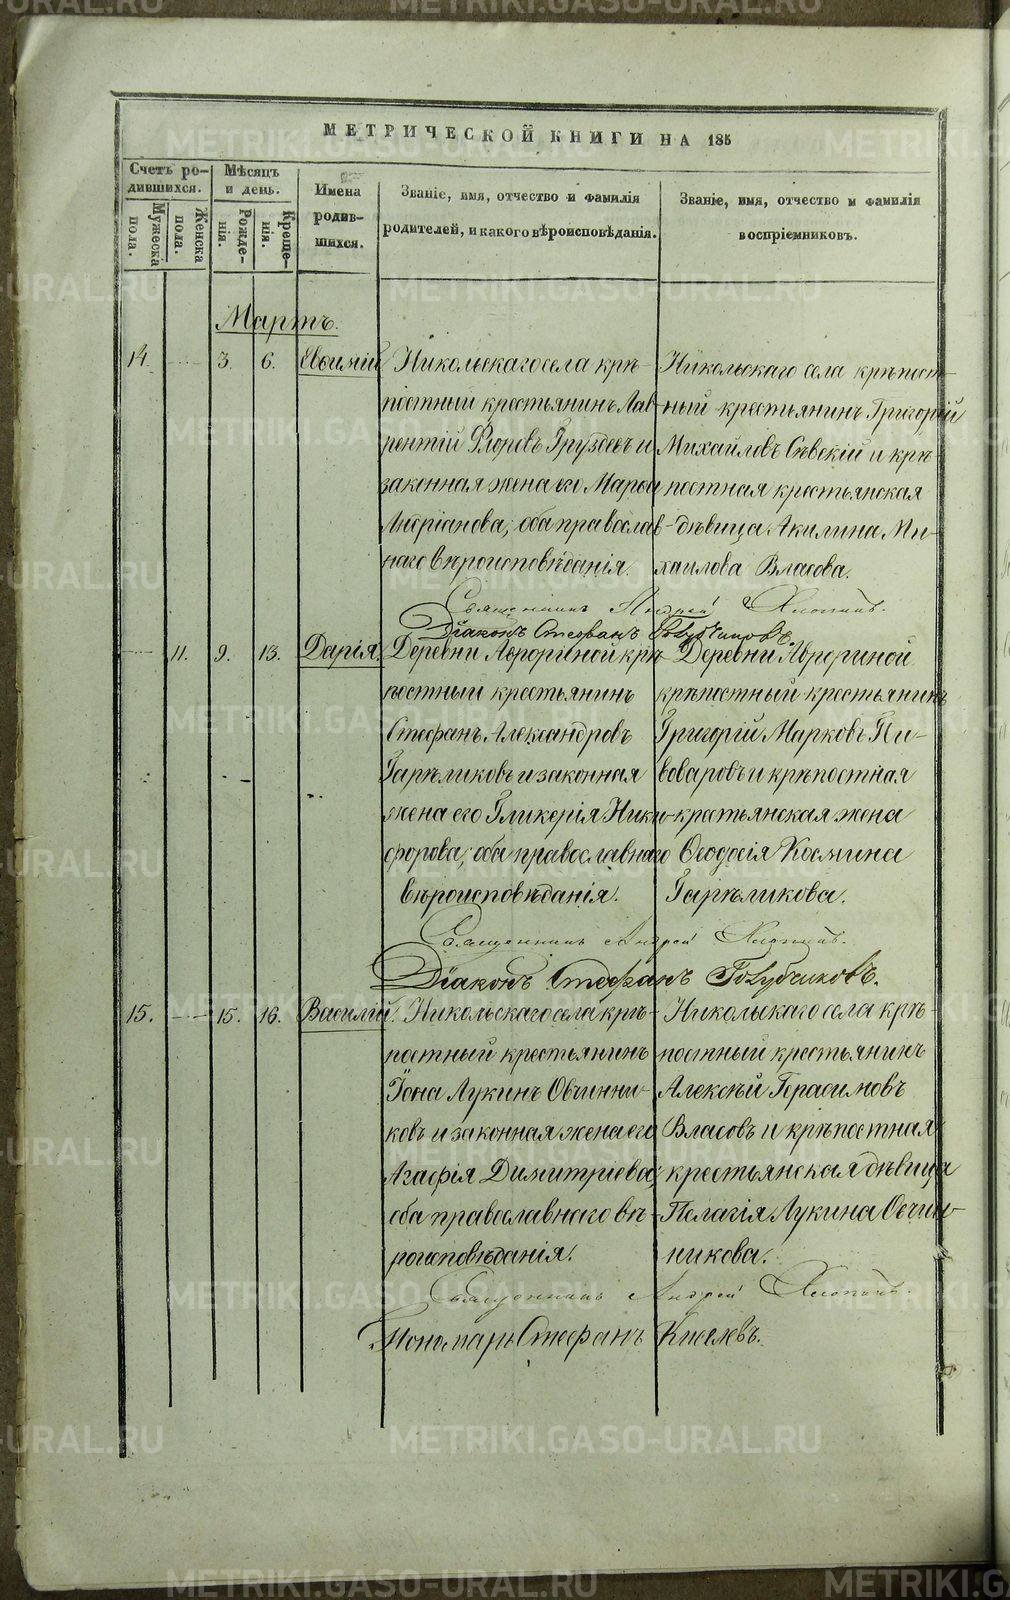 МЕТРИЧЕСКОЙ КНИГИ НА 185
Счетъ ро-
дившихся.
Мужеска
пола.
Женска
пола.
Мѣсяцъ
и день.
Рожде-
нія.
Креще-
нія.
Имена
родив-
шихся.
Званіе, имя, отчество и фамилія
родителей, и какого вѣроисповѣданія.
Званіе, имя, отчество и фамилія
воспріемниковъ.
Мартъ.
14. 3. 6. Евѳимій
Никольскаго села крѣ-
постный крестьянинъ Лав-
рентій Флоровъ Груздевъ и
законная жена его Марѳа
Андріанова, оба православ-
наго вѣроисповѣданія.
Никольскаго села крѣпост-
ный крестьянинъ Григорій
Михайловъ Сѣвскій и крѣ-
постная крестьянская
дѣвица Акилина Ми-
хаилова Власова.
Священникъ Андрей Хлопинъ.
Діаконъ Стефанъ Голубчиковъ.
11. 9. 13. Дарія.
Деревни Аѳрогиной крѣ-
постный крестьянинъ
Стефанъ Александровъ
Гарѣликовъ и законная
жена его Гликерія Ники-
форова, оба православнаго
вѣроисповѣданія.
Деревни Аѳрогиной
крѣпостный крестьянинъ
Григорій Марковъ Пи-
воваровъ и крѣпостная
крестьянская жена
Ѳеодосія Космина
Гарѣликова.
Священникъ Андрей Хлопинъ.
Діаконъ Стефанъ Голубчиковъ.
15. 15. 16. Василій.
Никольскаго села крѣ-
постный крестьянинъ
Іона Лукинъ Овчинни-
ковъ и законная жена его
Агафія Димитріева,
оба православнаго вѣ-
роисповѣданія.
Никольскаго села крѣ-
постный крестьянинъ
Алексѣй Герасимовъ
Власовъ и крѣпостная
крестьянская дѣвица
Пелагія Лукина Овчин-
никова.
Священникъ Андрей Хлопинъ.
Пономарь Стефанъ Киселевъ.
METRIKI.GASO-URAL.RU